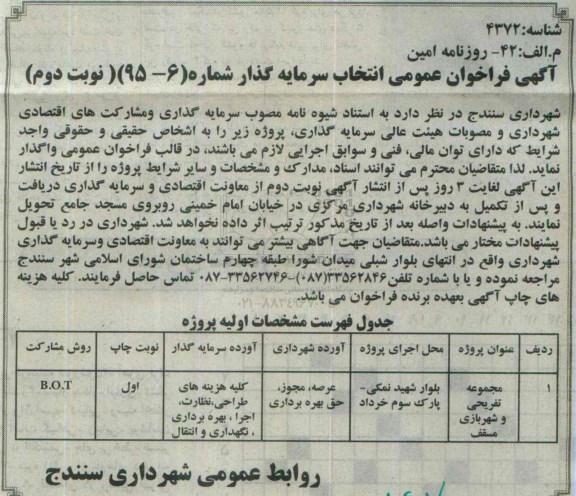 شناسه:۴۳۷۲
م.الف:۴۲- روزنامه امین
آگهی فراخوان عمومی انتخاب سرمایه گذار شماره(۶- ۹۵)( نوبت دوم)
شهرداری سنندج در نظر دارد به استناد شیوه نامه مصوب سرمایه گذاری ومشارکت های اقتصادی
شهرداری و مصوبات هیئت عالی سرمایه گذاری، پروژه زیر را به اشخاص حقیقی و حقوقی واجد
شرایط که دارای توان مالی، فنی و سوابق اجرایی لازم می باشند، در قالب فراخوان عمومی واگذار
نماید. لذا متقاضیان محترم می توانند اسناد، مدارک و مشخصات و سایر شرایط پروژه را از تاریخ انتشار
این آگهی لغایت ۳ روز پس از انتشار آگهی نوبت دوم از معاونت اقتصادی و سرمایه گذاری دریافت
و پس از تکمیل به دبیرخانه شهرداری مرکزی در خیابان امام خمینی روبروی مسجد جامع تحویل
نمایند. به پیشنهادات واصله بعد از تاریخ مذکور ترتیب اثر داده نخواهد شد. شهرداری در رد یا قبول
پیشنهادات مختار می باشد.متقاضیان جهت آگاهی بیشتر می توانند به معاونت اقتصادی وسرمایه گذاری
شهرداری واقع در انتهای بلوار شبلی میدان شورا طبقه چهارم ساختمان شورای اسلامی شهر سنندج
مراجعه نموده و یا با شماره تلفن۳۳۵۶۲۸۴۶(۰۸۷)-۳۳۵۶۲۷۴۶-۰۸۷ تماس حاصل فرمایند. کلیه هزینه
های چاپ آگهی بعهده برنده فراخوان می باشد.
جدول فهرست مشخصات اولیه پروژه
ردیف عنوان پروژه محل اجرای پروژه آورده شهرداری آورده سرمایه گذار نوبت چاپ روش مشارکت
۱ مجموعه تفریحی و شهربازی مسقف بلوار شهید نمکی- پارک سوم خرداد عرصه، مجوز، حق بهره برداری کلیه هزینه های طراحی،نظارت، اجرا ، بهره برداری ، نگهداری و انتقال اول B.O.T
روابط عمومی شهرداری سنندج